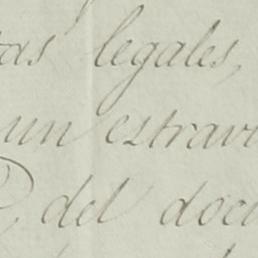 tas legales,
un estravi
del docu